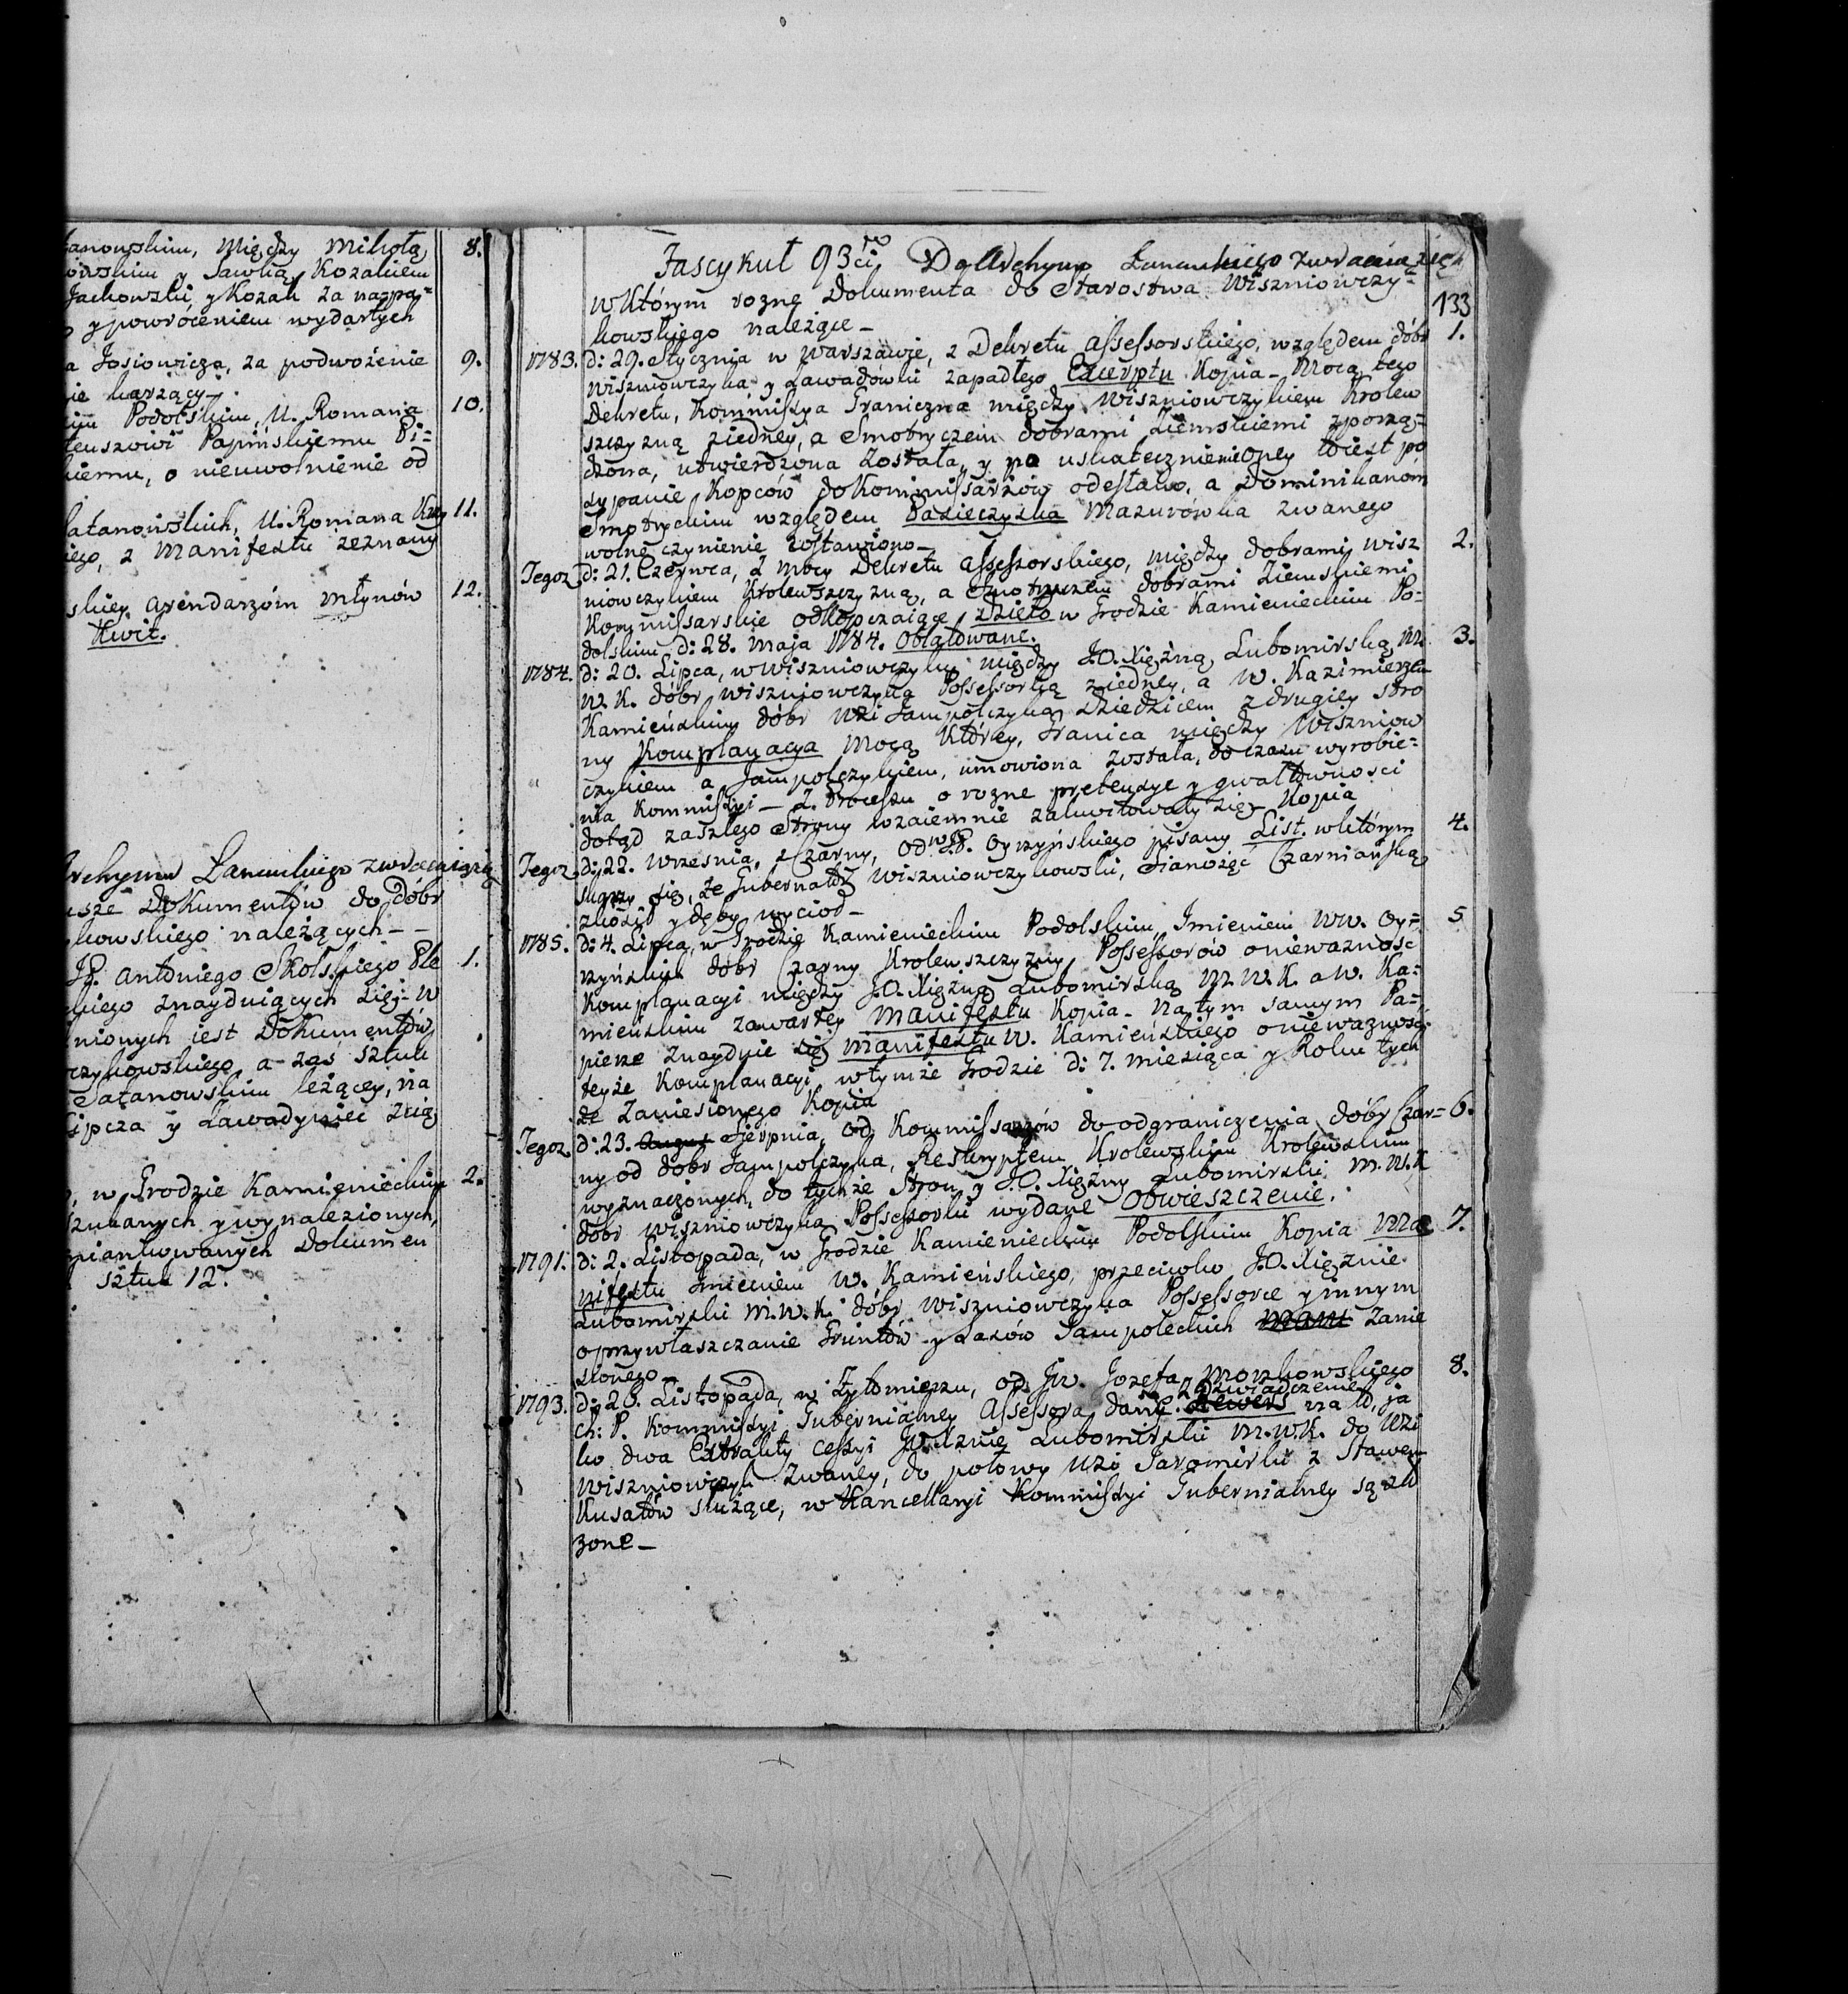 tanowskim, Między Mikołą 8.
owskim y Sawką Kozakiem
Jachowski, y Kozak za napa=
y powróceniem wydartych
a Josiowicza, za podwożenie 9.
nie karzący
kim Podolskim, U. Romana 10.
teuszowi Papińskiemu Pi=
kiemu, o nieuwolnienie od
Satanowskich, U. Romana 11.
iego, z Manifestu zeznany
skiey Arendarzóm młynów 12.
Kwit.
Archywu Lancuckiego zwracaią się
usze Dokumentów do Dóbr
kowskiego należących - -
JP. Antoniego Skolskiego Ple 1.
kiego znayduiących się: w
nionych iest Dokumentów
czykowskiego, a zaś sztuk
Satanowskim leżącey, na
Lipcza y Zawadyniec
w Grodzie Kamienieckim 2.
szukanych y wynalezionych,
mianowanych Dokumen
sztuk 12.
Fascykuł 93ci Do Archywu Lancuckiego zwracaią się
w Którym rozne Dokumenta do Starostwa Wiszniowczy= 133
kowskiego należące -
1783. d: 29. Stycznia w Warszawie, z Dekretu Assessorskiego, względem dóbr 1.
Wiszniowczyka y Zawadówki zapadłego Excerptu Kopia - Mocą tego
Dekretu, Kommissya Graniczna między Wiszniowczykiem Krolew
szczyzną ziedney, a Smotryczem dobrami Ziemskiemi zporzą=
dzona, utwierdzona została, y na uskutecznienie oney toiest po
sypanie Kopców do Kommissarzów odesłano, a Dominikanóm
Smotryckim względem Pasieczyska Mazurówka zwanego
wolne czynienie zostawiono -
Tegoz d: 21. Czerwca, z mocy Dekretu Assessorskiego, między dobrami Wisz 2.
niowczykiem Krolewszczyzną, a Smotryczem dobrami Ziemskiemi
Kommissarskie odkopczaiące, Dzieło w Grodzie Kamienieckim Po=
dolskim d: 28. Maja 1784. Oblatowane.
1784. d: 20. Lipca, w Wiszniowczyku między J.O. Xiężną Lubomirską, M. 3.
W. K. dóbr Wiszniowczyka Possessorką ziedney, a W. Kazimierzem
Kamieńskim dóbr Wsi Jampolczyka Dziedzicem z drugiey stro
ny Komplanacya mocą Którey, Granica między Wiszniow
czykiem a Jampolczykiem, umowiona została, do czasu wyrobie=
nia Kommissyi - Z. Processu o rozne pretensye y gwałtowności
dotąd zaszłego Strony wzaiemnie zakwitowały się - Kopia
Tegoz d: 22. Wrzesnia, z Czarny, od W.JP. Oyrzyńskiego pisany List. w Którym 4.
skarzy się, że Gubernator Wiszniowczykowski, Sianożęć Czarniańską
zkosił y dęby wyciął -
1785. d: 4. Lipca, w Grodzie Kamienieckim Podolskim Imieniem WW. Oy= 5
rzyńskich dóbr Czarny Krolewszczyzny Possessorów o nieważność
Komplanacyi między J.O. Xiężną Lubomirską M. W. K. a W. Ka=
mieńskim zawartey Manifestu Kopia - Na tym samym Pa=
pierze znayduie się Manifestu W. Kamieńskiego o nieważność
teyże Komplanacyi w tymże Grodzie d: 7. miesiąca y Roku tych
że Zaniesionego Kopia
Tegoz. d: 23. August Sierpnia, od Kommissarzów do odgraniczenia dóbr Czar= 6.
ny od dobr Jampolczyka, Reskryptem Krolewskim Krolewskim
wyznaczonych, do tychże Stron y J.O. Xiężny Lubomirski M. W. K
dobr Wiszniowczyka Possessorki wydane Obwieszczenie.
1791. d: 2. Listopada, w Grodzie Kamienieckim Podolskim Kopia Ma 7.
nifestu Imieniem W. Kamieńskiego, przeciwko J.O. Xiężnie
Lubomirski M. W. K. dóbr Wiszniowczyka Possessorce y innym
o przywłaszczanie Gruntów y Lasów Jampoleckich Mani Zanie
sionego -
1793. d: 20. Listopada, w Żytomierzu, od JW. Jozefa Morzkowskiego 8.
zaświadczenie
ch: P. Kommissyi Guberniialney Assessora dane Rewers na to, ja
ko dwa Extrakty Cessyi Lubomirski M. W. K. do Wsi
Wiszniowczyk zwaney, do połowy Wsi Jaromirki z Stawem
Kusałów służące, w Kancellaryi Kommissyi Guberniialney są zło
żone -